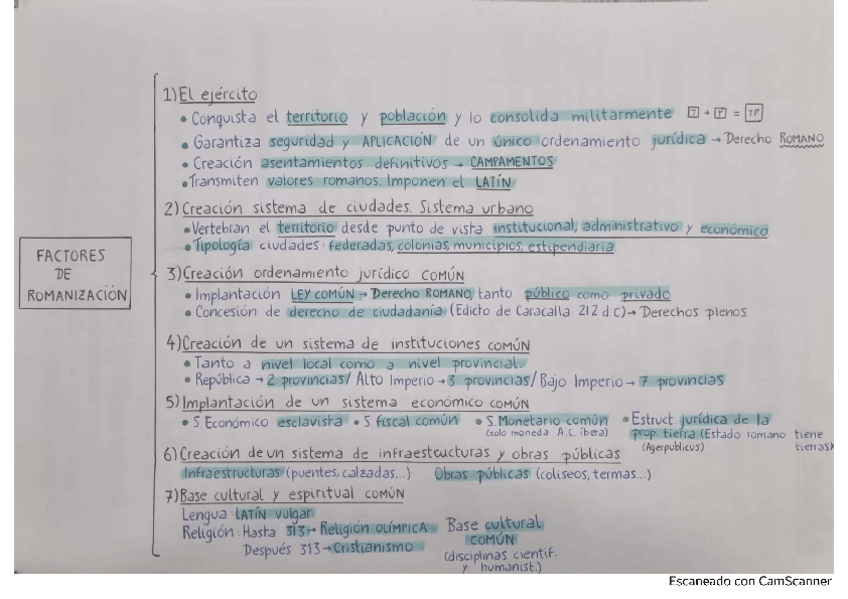 FACTORES
DE
ROMANIZACIÓN
1) El ejército
• Conquista el territorio y población y lo consolida militarmente T + P = TP
• Garantiza seguridad y APLICACIÓN de un único ordenamiento jurídica → Derecho ROMANO
• Creación asentamientos definitivos → CAMPAMENTOS
• Transmiten valores romanos. Imponen el LATÍN
2) Creación sistema de ciudades. Sistema urbano
• Vertebran el territorio desde punto de vista institucional, administrativo y económico
• Tipología ciudades: federadas, colonias, municipios, estipendiaria
3) Creación ordenamiento jurídico COMÚN
• Implantación LEY COMÚN → Derecho ROMANO, tanto público como privado
• Concesión de derecho de ciudadanía (Edicto de Caracalla 212 d C) → Derechos plenos
4) Creación de un sistema de instituciones COMÚN
• Tanto a nivel local como a nivel provincial.
• República → 2 provincias / Alto Imperio → 3 provincias / Bajo Imperio → 7 provincias
5) Implantación de un sistema económico COMÚN
• S. Económico esclavista • S fiscal común • S Monetario común • Estruct. jurídica de la
(solo moneda A.C. íbera) prop. tierra (Estado romano tiene
(Agerpublicus) tierras)
6) Creación de un sistema de infraestructuras y obras públicas
Infraestructuras (puentes, calzadas...) Obras públicas (coliseos, termas...)
7) Base cultural y espiritual COMÚN
Lengua: LATÍN vulgar
Religión: Hasta 313 → Religión OLÍMPICA Base cultural
Después 313 → Cristianismo COMÚN
(disciplinas científ.
y humanist.)
Escaneado con CamScanner